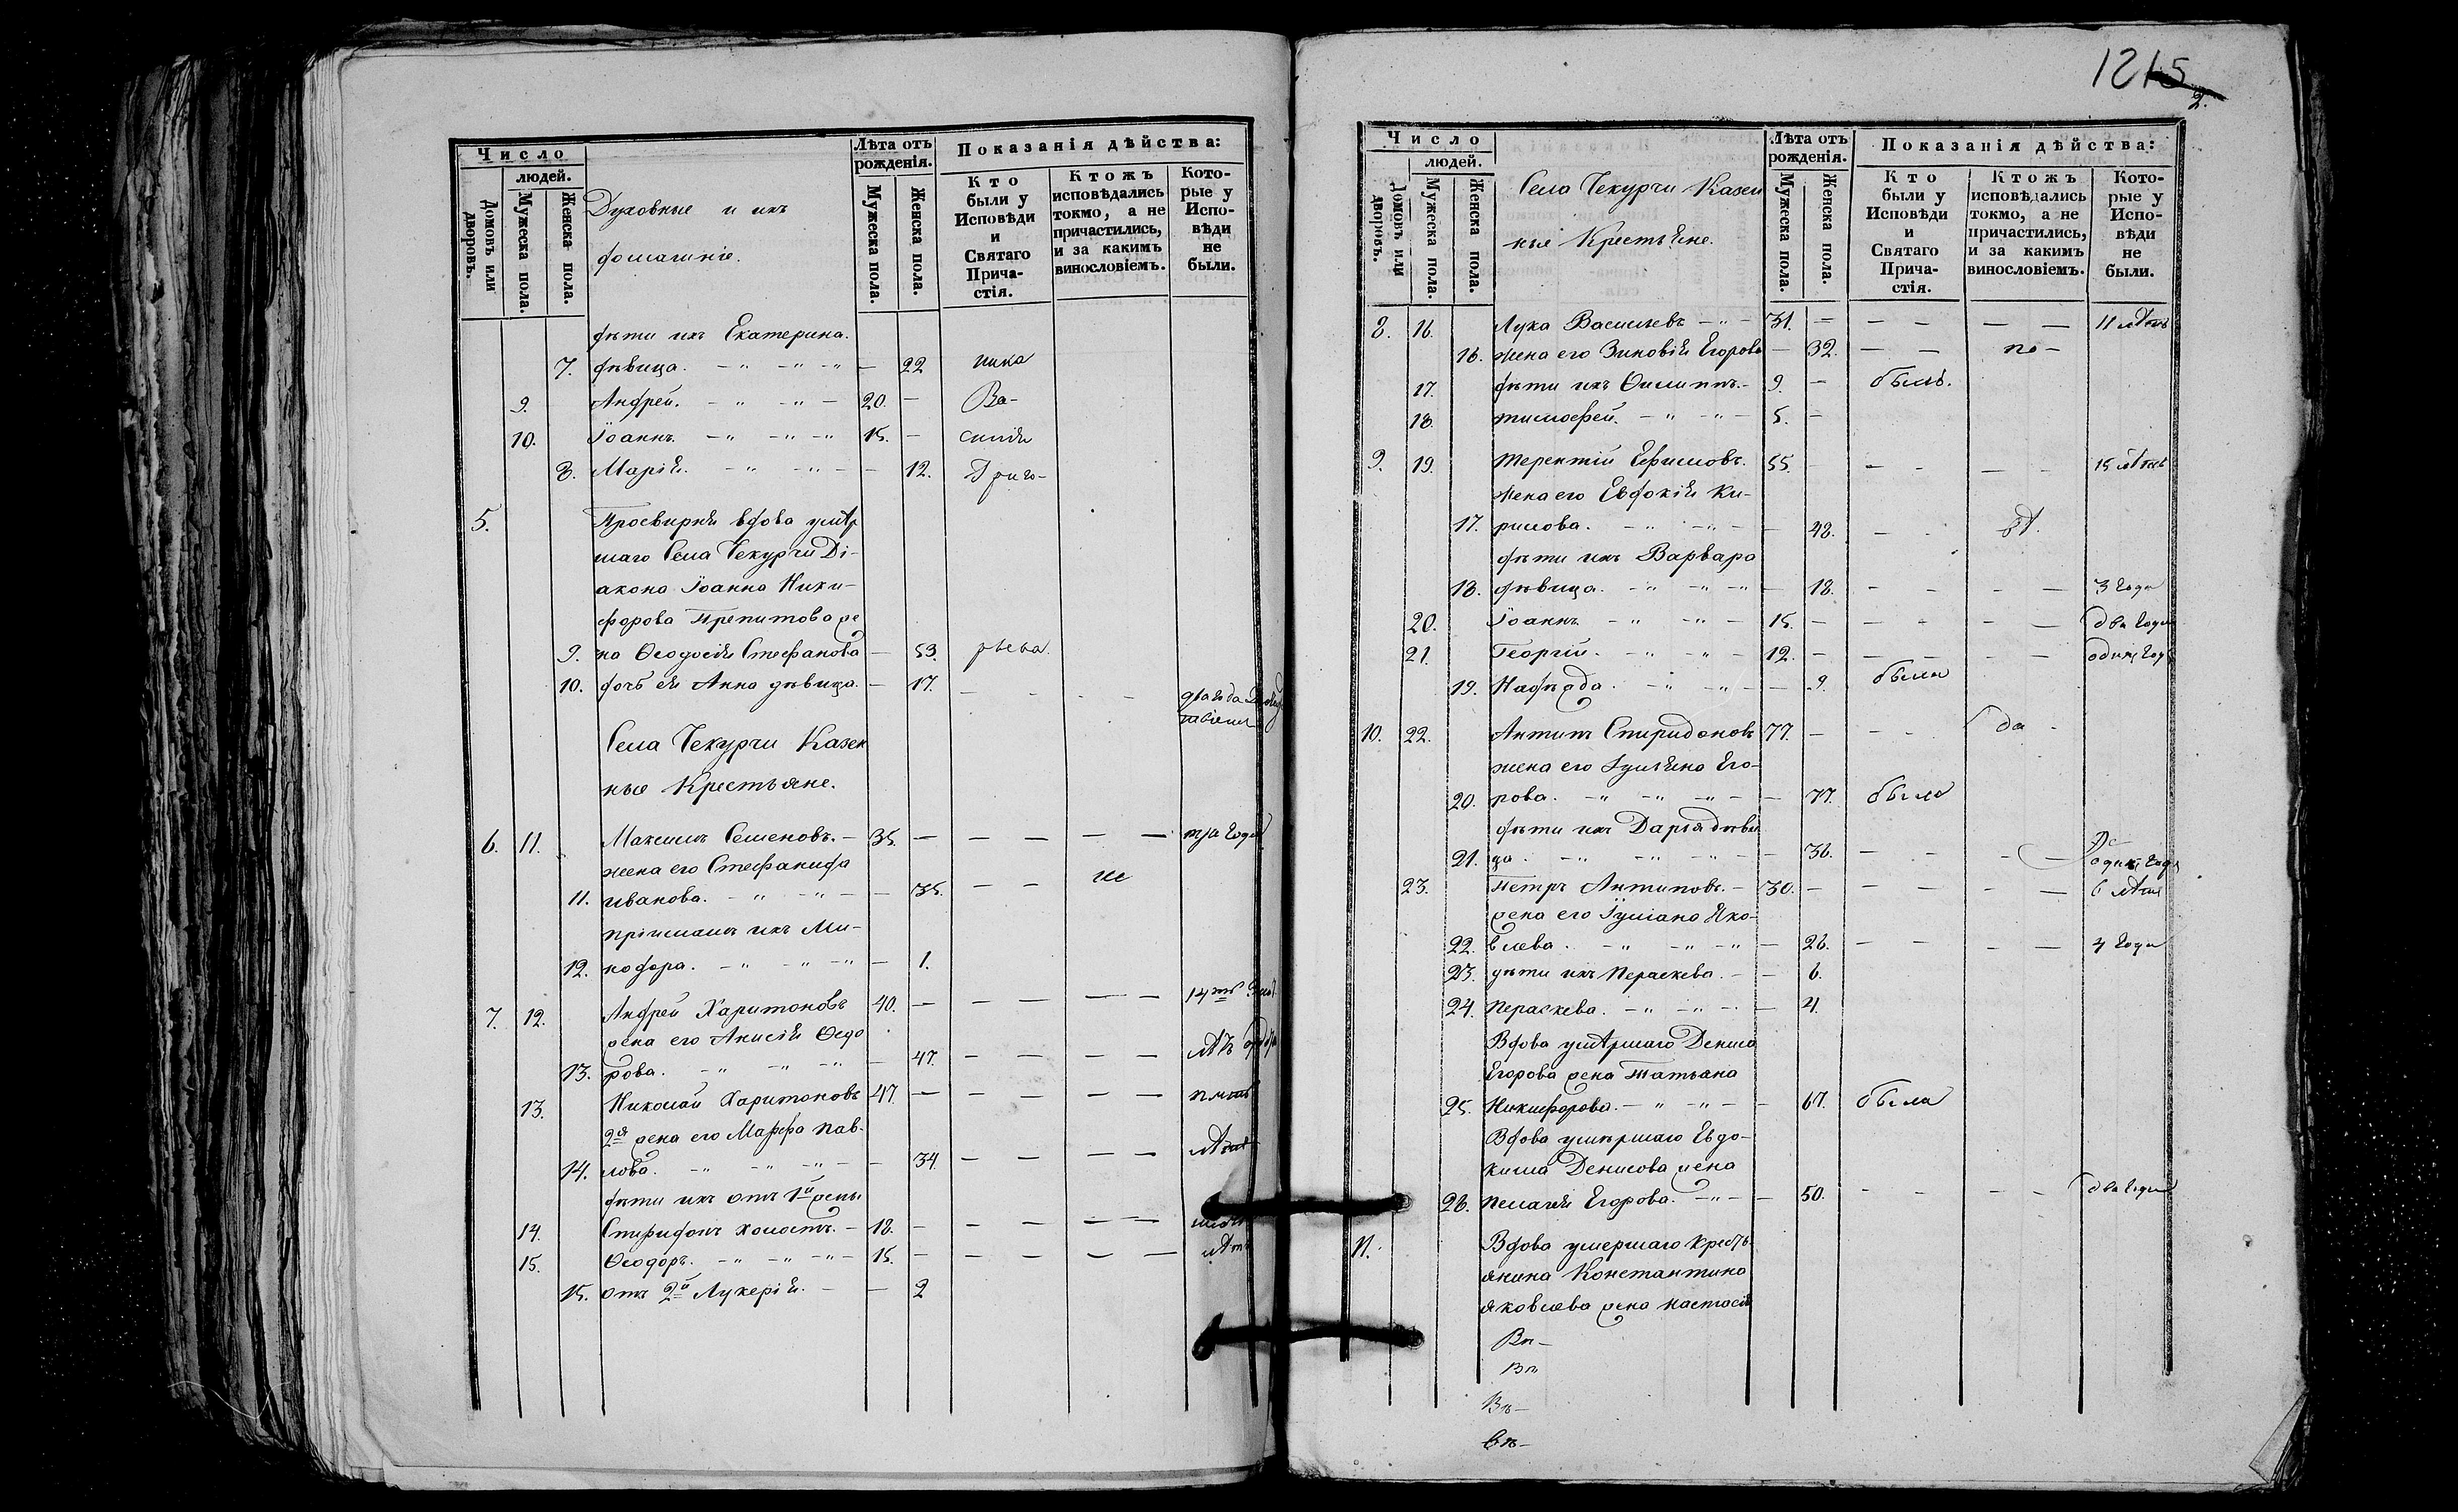 Число
людей.
Домовъ или дворовъ.
Мужеска пола.
Женска пола.
Духовные и ихъ
домашніе.
Лѣта отъ рожденія.
Мужеска пола.
Женска пола.
Показанія дѣйства:
Кто были у Исповѣди и Святаго Причастія.
Ктожъ исповѣдались токмо, а не причастились, и за какимъ винословіемъ.
Которые у Исповѣди не были.
дѣти ихъ Екатерина.
7. дѣвица. — 22
9. Андрей. 20. — Ва-
10. Іоаннъ 15. — силій
8. Марія. — 12. Григо-
5. Просвирня вдова умер
шаго Села Чекурчи Ді-
акона Іоанна Ники-
форова
9. на Ѳеодосія Стефанова — 53. рьева
10. дочь ея Анна дѣвица. — 17. — два года
Села Чекурчи Казен
ные Крестьяне.
6. 11. Максимъ Семеновъ. — 35. — — — — — три года
жена его Стефанида
11. иванова. — 35. — —
пріимашъ ихъ Ми-
12. нодора. — 1.
7. 12. Андрей Харитоновъ 40. — — — — — 14
жена его Анисія Ѳедо
13. рова. — 47. — — — —
13. Николай Харитоновъ 47. — — — — —
2я жена его Марфа пав-
14. лова. — 34. — — — —
дѣти ихъ отъ 1й жены
14. Спиридонъ холостъ. — 18. — — — — —
15. Ѳеодоръ. 15. — — — — —
15. отъ 2й Лукерія. — — 2
1215
2.
Число
людей.
Домовъ или дворовъ.
Мужеска пола.
Женска пола.
Села Чекурчи Казен
ные Крестьяне.
Лѣта отъ рожденія.
Мужеска пола.
Женска пола.
Показанія дѣйства:
Кто были у Исповѣди и Святаго Причастія.
Ктожъ исповѣдались токмо, а не причастились, и за какимъ винословіемъ.
Которые у Исповѣди не были.
8. 16. Лука Васильевъ 31. — — — — — 11 лѣтъ
16. жена его Зиновія Егорова — 32. — — по-
17. дѣти ихъ Филиппъ. 9. — былъ.
18. тимофей. 5. —
9. 19. Терентій Ефимовъ. 55. — — — — — 15 лѣтъ
жена его Евдокія Ки-
17. рилова. — 48. — -
дѣти ихъ Варвара
18. дѣвица. — 18. — — — — 3 года
20. Іоаннъ 15. — — — — — два года
21. Георгій. 12. — — — — — одинъ годъ
19. Надежда. — 9. была
10. 22. Антипъ Спиридоновъ 77. — — - да -
жена его Іуліяна Его-
20. рова. — 77. была
дѣти ихъ Дарья дѣви
21. ца. — 36. — — — — одинъ годъ
23. Петръ Антиповъ. — 30. — — — — — 6 лѣтъ
жена его Іуліана Яко-
22. влева. — 26. — — — — 4 года
23. дѣти ихъ Параскева. — — 6.
24. Параскева. — 4.
Вдова умершаго Дениса
Егорова жена Татьана
25. Никифорова. — 67. была
Вдова умершаго Евдо-
кима Денисова жена
26. Пелагія Егорова. — 50. - - — - два года
11. Вдова умершаго кресть
янина Константина
яковлева жена настасія
Вп-
Вп
Въ-
Въ-